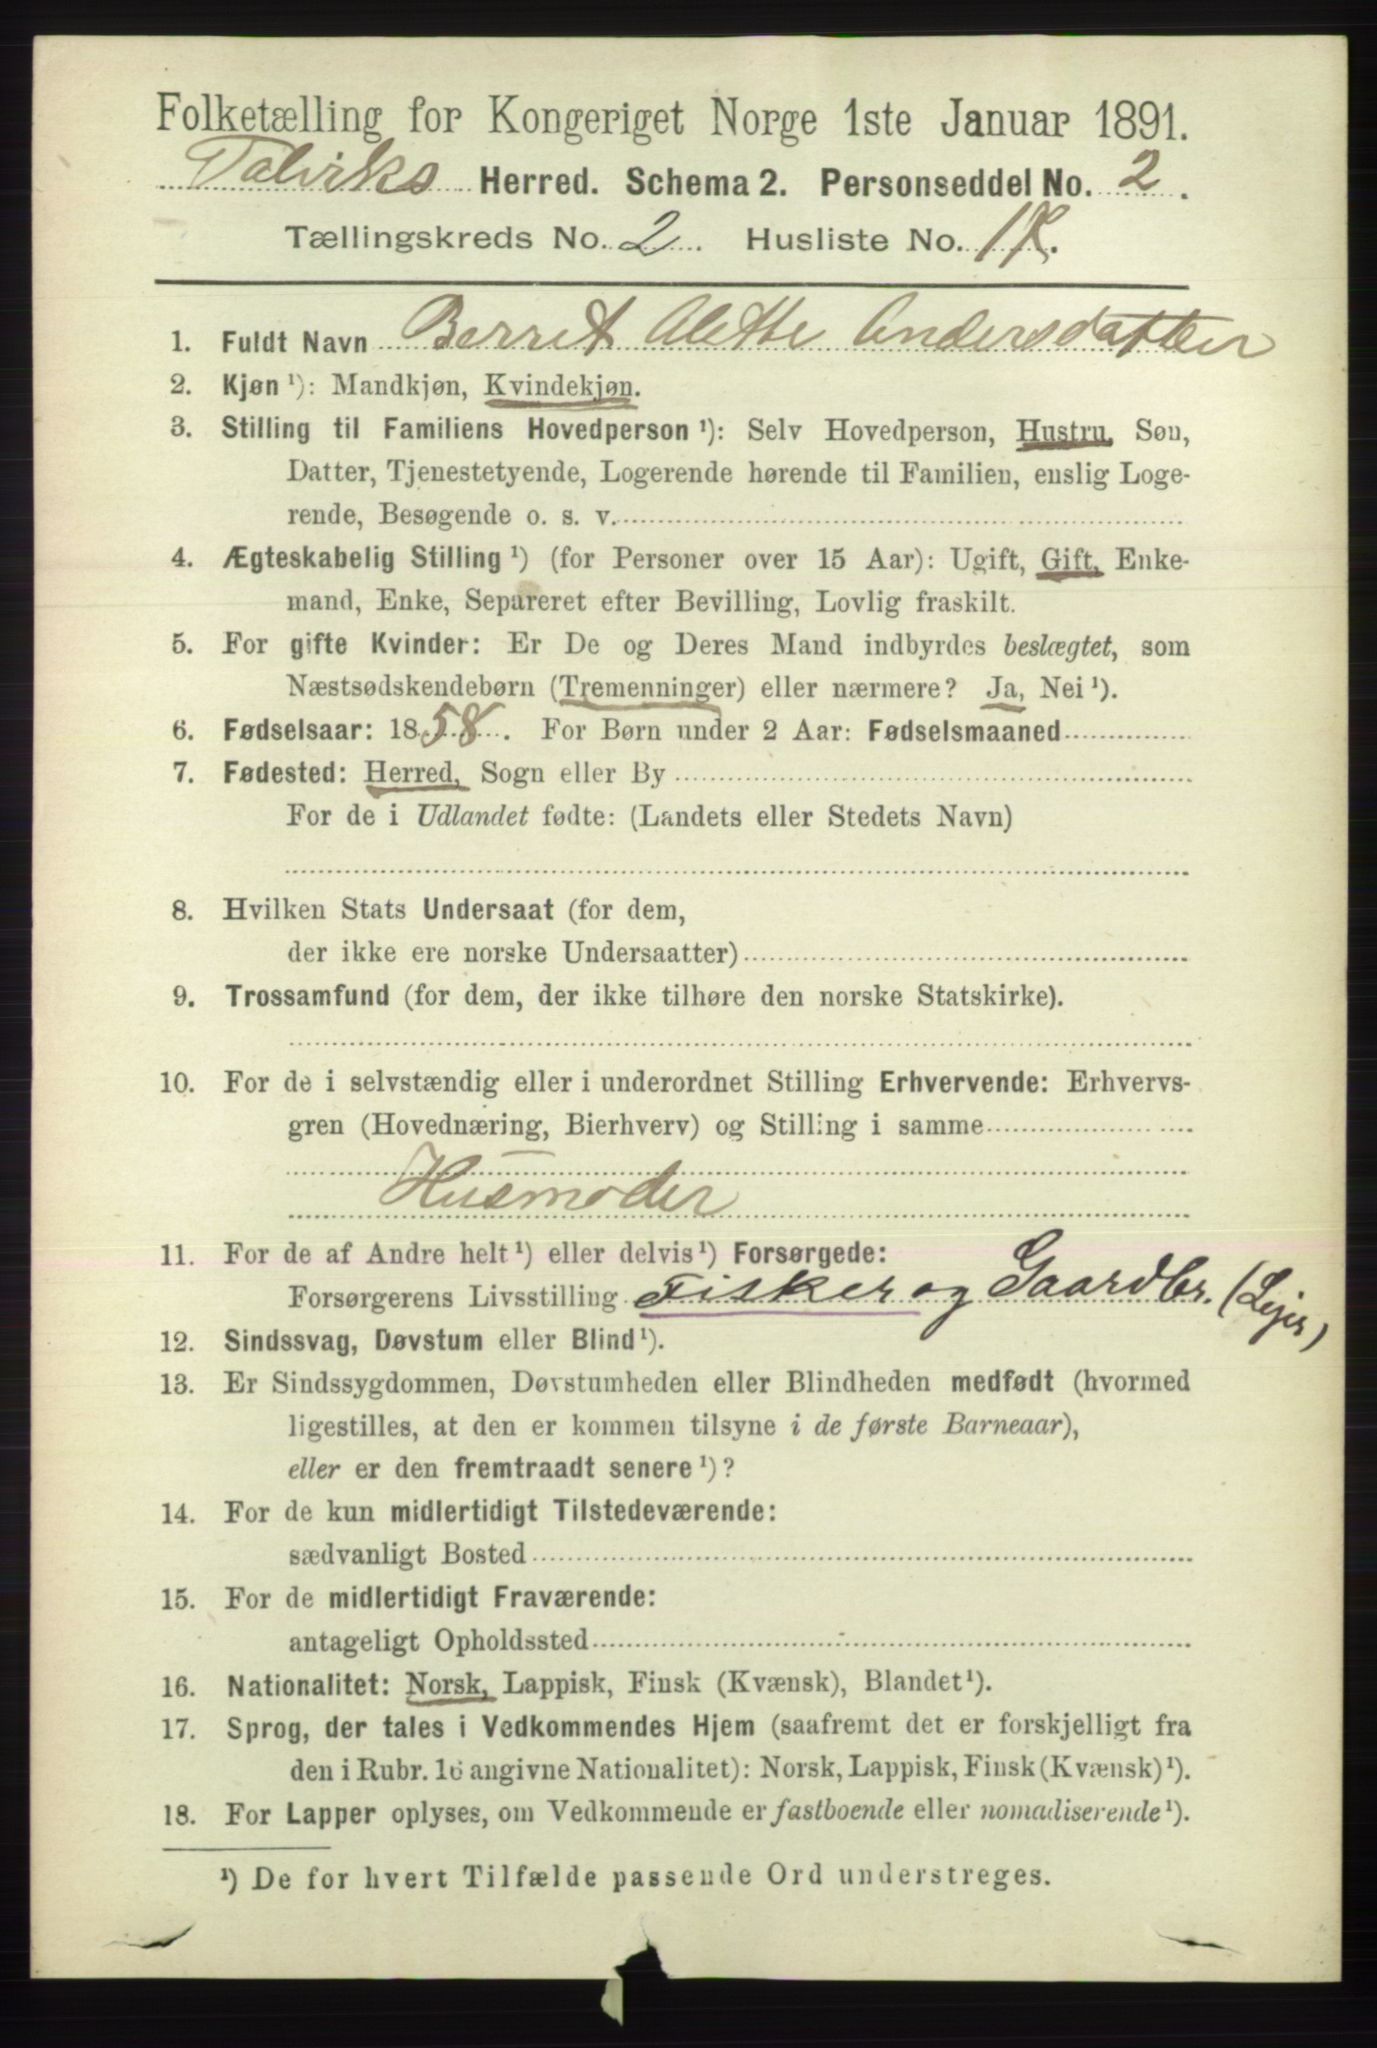 Folketælling for Kongeriget Norge 1ste Januar 1891.
Talviks Herred. Schema 2. Personseddel No. 2.
Tællingskreds No. 2. Husliste No.
1. Fuldt Navn Berret Alette Andersdatter
2. Kjøn ¹): Mandkjøn, Kvindekjøn.
3. Stilling til Familiens Hovedperson ¹): Selv Hovedperson, Hustru, Søn,
Datter, Tjenestetyende, Logerende hørende til Familien, enslig Loge-
rende, Besøgende o. s. v.
4. Ægteskabelig Stilling ¹) (for Personer over 15 Aar): Ugift, Gift, Enke-
mand, Enke, Separeret efter Bevilling, Lovlig fraskilt.
5. For gifte Kvinder: Er De og Deres Mand indbyrdes beslægtet, som
Næstsødskendebørn (Tremenninger) eller nærmere? Ja, Nei ¹).
6. Fødselsaar: 1858. For Børn under 2 Aar: Fødselsmaaned
7. Fødested: Herred, Sogn eller By
For de i Udlandet fødte: (Landets eller Stedets Navn)
8. Hvilken Stats Undersaat (for dem,
der ikke ere norske Undersaatter)
9. Trossamfund (for dem, der ikke tilhøre den norske Statskirke).
10. For de i selvstændig eller i underordnet Stilling Erhvervende: Erhvervs-
gren (Hovednæring, Bierhverv) og Stilling i samme
Husmoder
11. For de af Andre helt ¹) eller delvis ¹) Forsørgede:
Forsørgerens Livsstilling Fisker og Gaardbr. (Lejer)
12. Sindssvag, Døvstum eller Blind ¹).
13. Er Sindssygdommen, Døvstumheden eller Blindheden medfødt (hvormed
ligestilles, at den er kommen tilsyne i de første Barneaar),
eller er den fremtraadt senere ¹)?
14. For de kun midlertidigt Tilstedeværende:
sædvanligt Bosted
15. For de midlertidigt Fraværende:
antageligt Opholdssted
16. Nationalitet: Norsk, Lappisk, Finsk (Kvænsk), Blandet ¹).
17. Sprog, der tales i Vedkommendes Hjem (saafremt det er forskjelligt fra
den i Rubr. 16 angivne Nationalitet): Norsk, Lappisk, Finsk (Kvænsk) ¹).
18. For Lapper oplyses, om Vedkommende er fastboende eller nomadiserende ¹).
¹) De for hvert Tilfælde passende Ord understreges.